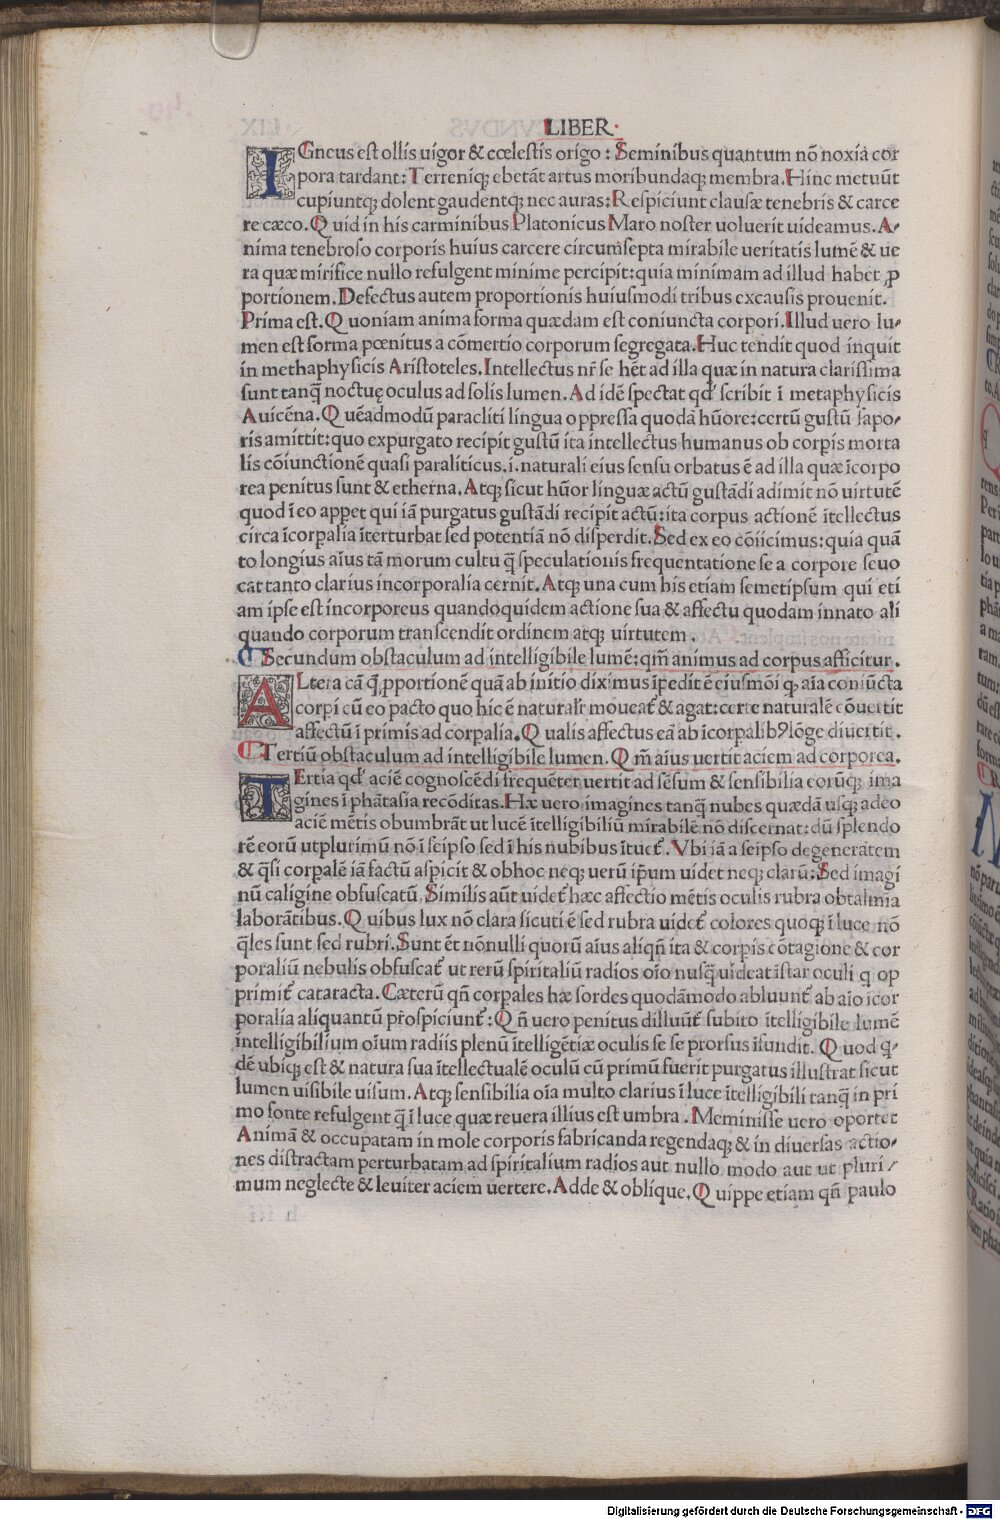 LIBER.
IGneus est ollis uigor & cœlestis origo: Seminibus quantum nõ noxia cor
pora tardant: Terreniqꝫ ebetãt artus moribundaqꝫ membra. Hinc metuũt
cupiuntqꝫ dolent gaudentqꝫ nec auras: Respiciunt clausæ tenebris & carce
re cæco. Quid in his carminibus Platonicus Maro noster uoluerit uideamus. A-
nima tenebroso corporis huius carcere circumsepta mirabile ueritatis lumẽ & ue
ra quæ mirifice nullo refulgent minime percipit: quia minimam ad illud habet ꝓ
portionem. Defectus autem proportionis huiusmodi tribus excausis prouenit.
Prima est. Quoniam anima forma quædam est coniuncta corpori. Illud uero lu-
men est forma pœnitus a cõmertio corporum segregata. Huc tendit quod inquit
in methaphysicis Aristoteles. Intellectus nr̃ se hẽt ad illa quæ in natura clarissima
sunt tanq̃ noctuę oculus ad solis lumen. Ad idẽ spectat qđ scribit ĩ metaphysicis
Auicẽna. Quẽadmodũ paracliti lingua oppressa quodã hũore: certũ gustũ sapo-
ris amittit: quo expurgato recipit gustũ ita intellectus humanus ob corpis morta
lis cõiunctionẽ quasi paraliticus. i. naturali eius sensu orbatus ẽ ad illa quæ ĩcorpo
rea penitus sunt & etherna. Atqꝫ sicut hũor linguæ actũ gustãdi adimit nõ uirtutẽ
quod ĩ eo appet qui iã purgatus gustãdi recipit actũ: ita corpus actionẽ ĩtellectus
circa ĩcorpalia ĩterturbat sed potentiã nõ disperdit. Sed ex eo cõiicimus: quia quã
to longius aĩus tã morum cultu q̃ speculationis frequentatione se a corpore seuo
cat tanto clarius incorporalia cernit. Atqꝫ una cum his etiam semetipsum qui eti
am ipse est incorporeus quandoquidem actione sua & affectu quodam innato ali
quando corporum transcendit ordinem atqꝫ uirtutem.
Secundum obstaculum ad intelligibile lumẽ: qm̃ animus ad corpus afficitur.
ALtera cã q̃ ꝓportionẽ quã ab initio diximus ĩpedit ẽ eiusmõi qꝫ aĩa coniũcta
corpi cũ eo pacto quo hic ẽ naturalr̃ moueat̃ & agat: certe naturalẽ cõuertit
affectũ ĩ primis ad corpalia. Qualis affectus eã ab ĩcorpalibꝰ lõge diuertit.
Tertiũ obstaculum ad intelligibile lumen. Qm̃ aĩus uertit aciem ad corporea.
TErtia qđ aciẽ cognoscẽdi frequẽter uertit ad sẽsum & sensibilia eorũqꝫ ima
gines ĩ phãtasia recõditas. Hæ uero imagines tanq̃ nubes quædã usqꝫ adeo
aciẽ mẽtis obumbrãt ut lucẽ ĩtelligibiliũ mirabilẽ nõ discernat: dũ splendo
rẽ eorũ utplurimũ nõ ĩ seipso sed ĩ his nubibus ĩtuet̃. Vbi iã a seipso degenerãtem
& q̃si corpalẽ iã factũ aspicit & obhoc neqꝫ uerũ ip̃um uidet neqꝫ clarũ: Sed imagi
nũ caligine obfuscatũ. Similis aũt uidet̃ hæc affectio mẽtis oculis rubra obtalmia
laborãtibus. Quibus lux nõ clara sicuti ẽ sed rubra uidet̃ colores quoqꝫ ĩ luce nõ
q̃les sunt sed rubri. Sunt ẽt nõnulli quorũ aĩus aliqñ ita & corpis cõtagione & cor
poraliũ nebulis obfuscat̃ ut rerũ spiritaliũ radios oĩo nusq̃ uideat ĩstar oculi q̃ op
primit̃ cataracta. Cæterũ qñ corpales hæ sordes quodãmodo abluunt̃ ab aĩo ĩcor
poralia aliquantũ pr̃ospiciunt̃: Qñ uero penitus dilluũt̃ subito ĩtelligibile lumẽ
intelligibilium oĩum radiis plenũ ĩtelligẽtiæ oculis se se prorsus ĩfundit. Quod q̃-
dẽ ubiqꝫ est & natura sua ĩtellectualẽ oculũ cũ primũ fuerit purgatus illustrat sicut
lumen uisibile uisum. Atqꝫ sensibilia oĩa multo clarius ĩ luce ĩtelligibili tanq̃ in pri
mo fonte refulgent q̃ ĩ luce quæ reuera illius est umbra. Meminisse uero oportet
Animã & occupatam in mole corporis fabricanda regendaqꝫ & in diuersas actio-
nes distractam perturbatam ad spiritalium radios aut nullo modo aut ut pluri-
mum neglecte & leuiter aciem uertere. Adde & oblique. Quippe etiam qñ paulo
Digitalisierung gefördert durch die Deutsche Forschungsgemeinschaft - DFG